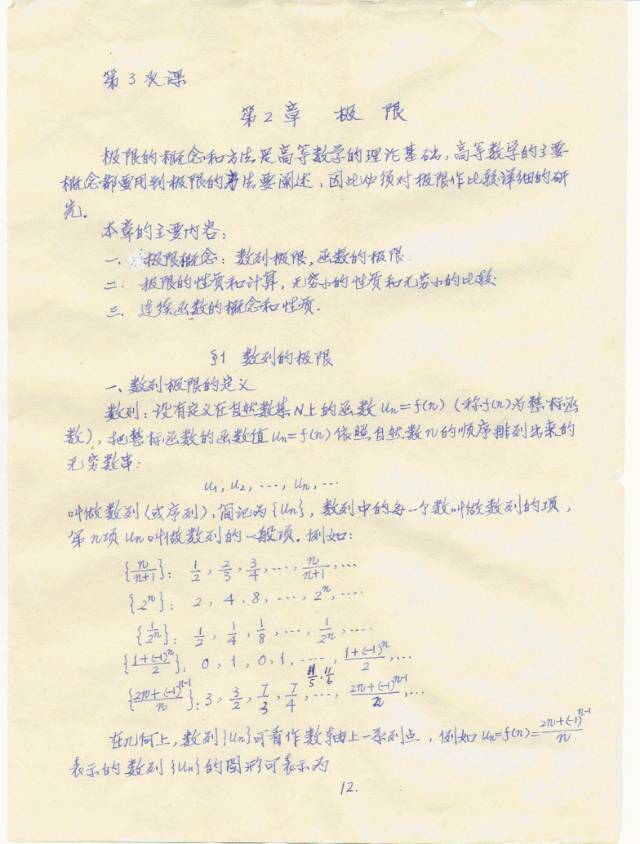 第3次课
第2章 极限
极限的概念和方法是高等数学的理论基础,高等数学的主要
概念都要用到极限的方法要阐述,因此必须对极限作比较详细的研
究。
本章的主要内容:
一. 极限概念:数列极限,函数的极限.
二. 极限的性质和计算,无穷小的性质和无穷小的比较.
三. 连续函数的概念和性质.
§1 数列的极限
一、数列极限的定义
数列:设有定义在自然数集N上的函数 uₙ=f(n) (称f(n)为整标函
数),把整标函数的函数值 uₙ=f(n)依照自然数n的顺序排列出来的
无穷数串:
u₁, u₂, …, uₙ, …
叫做数列(或序列),简记为{uₙ},数列中的每一个数叫做数列的项,
第n项 uₙ叫做数列的一般项. 例如:
{n/(n+1)}: 1/2, 2/3, 3/4, …, n/(n+1), …
{2ⁿ}: 2, 4, 8, …, 2ⁿ, …
{1/2ⁿ}: 1/2, 1/4, 1/8, …, 1/2ⁿ, …
{(1+(-1)ⁿ)/2}: 0, 1, 0, 1, …, (1+(-1)ⁿ)/2, …
{(2n+(-1)ⁿ⁻¹)/n}: 3, 3/2, 7/3, 7/4, 11/5, 11/6 …, (2n+(-1)ⁿ⁻¹)/n, …
在几何上,数列{uₙ}可看作数轴上一系列点,例如 uₙ=f(n)=(2n+(-1)ⁿ⁻¹)/n
表示的数列{uₙ}的图形可表示为
12.